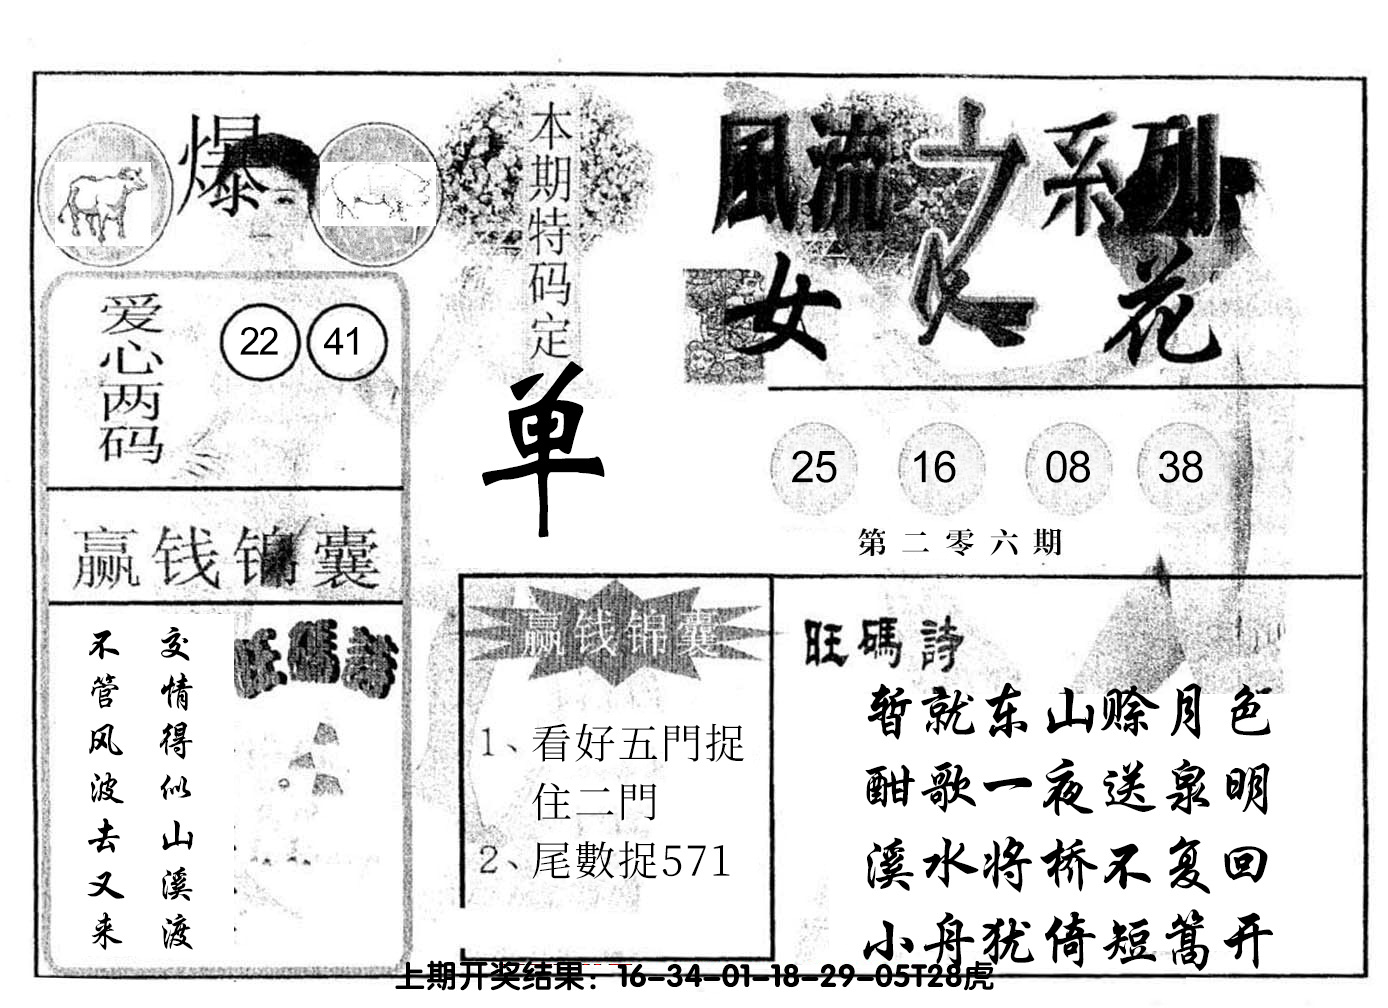 爆
本期特码定
单
風流之系列
女人花
爱心两码
22 41
25 16 08 38
第二零六期
赢钱锦囊
旺碼詩
交情得似山溪渡
不管风波去又来
赢钱锦囊
1、看好五門捉
住二門
2、尾數捉571
旺碼詩
暂就东山赊月色
酣歌一夜送泉明
溪水将桥不复回
小舟犹倚短篙开
上期开奖结果：16-34-01-18-29-05T28虎